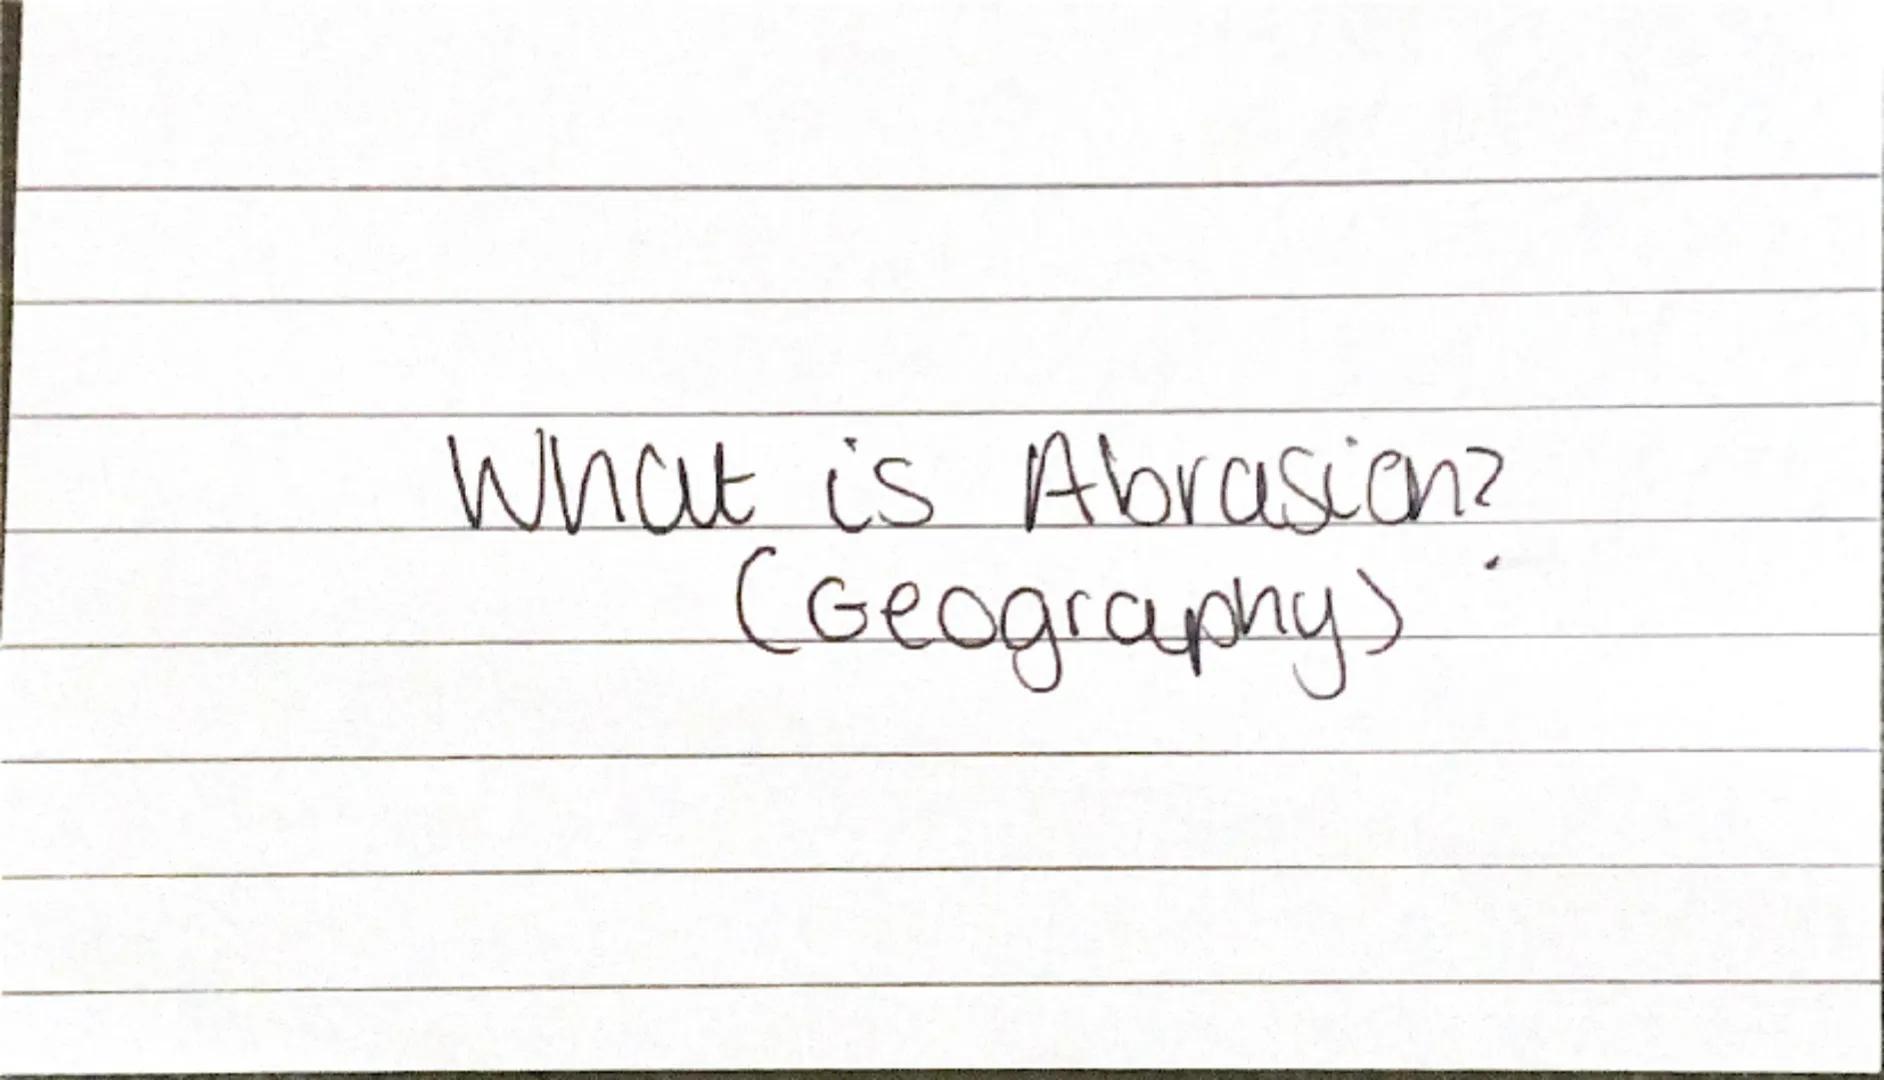 What is Abrasion?
(Geography)